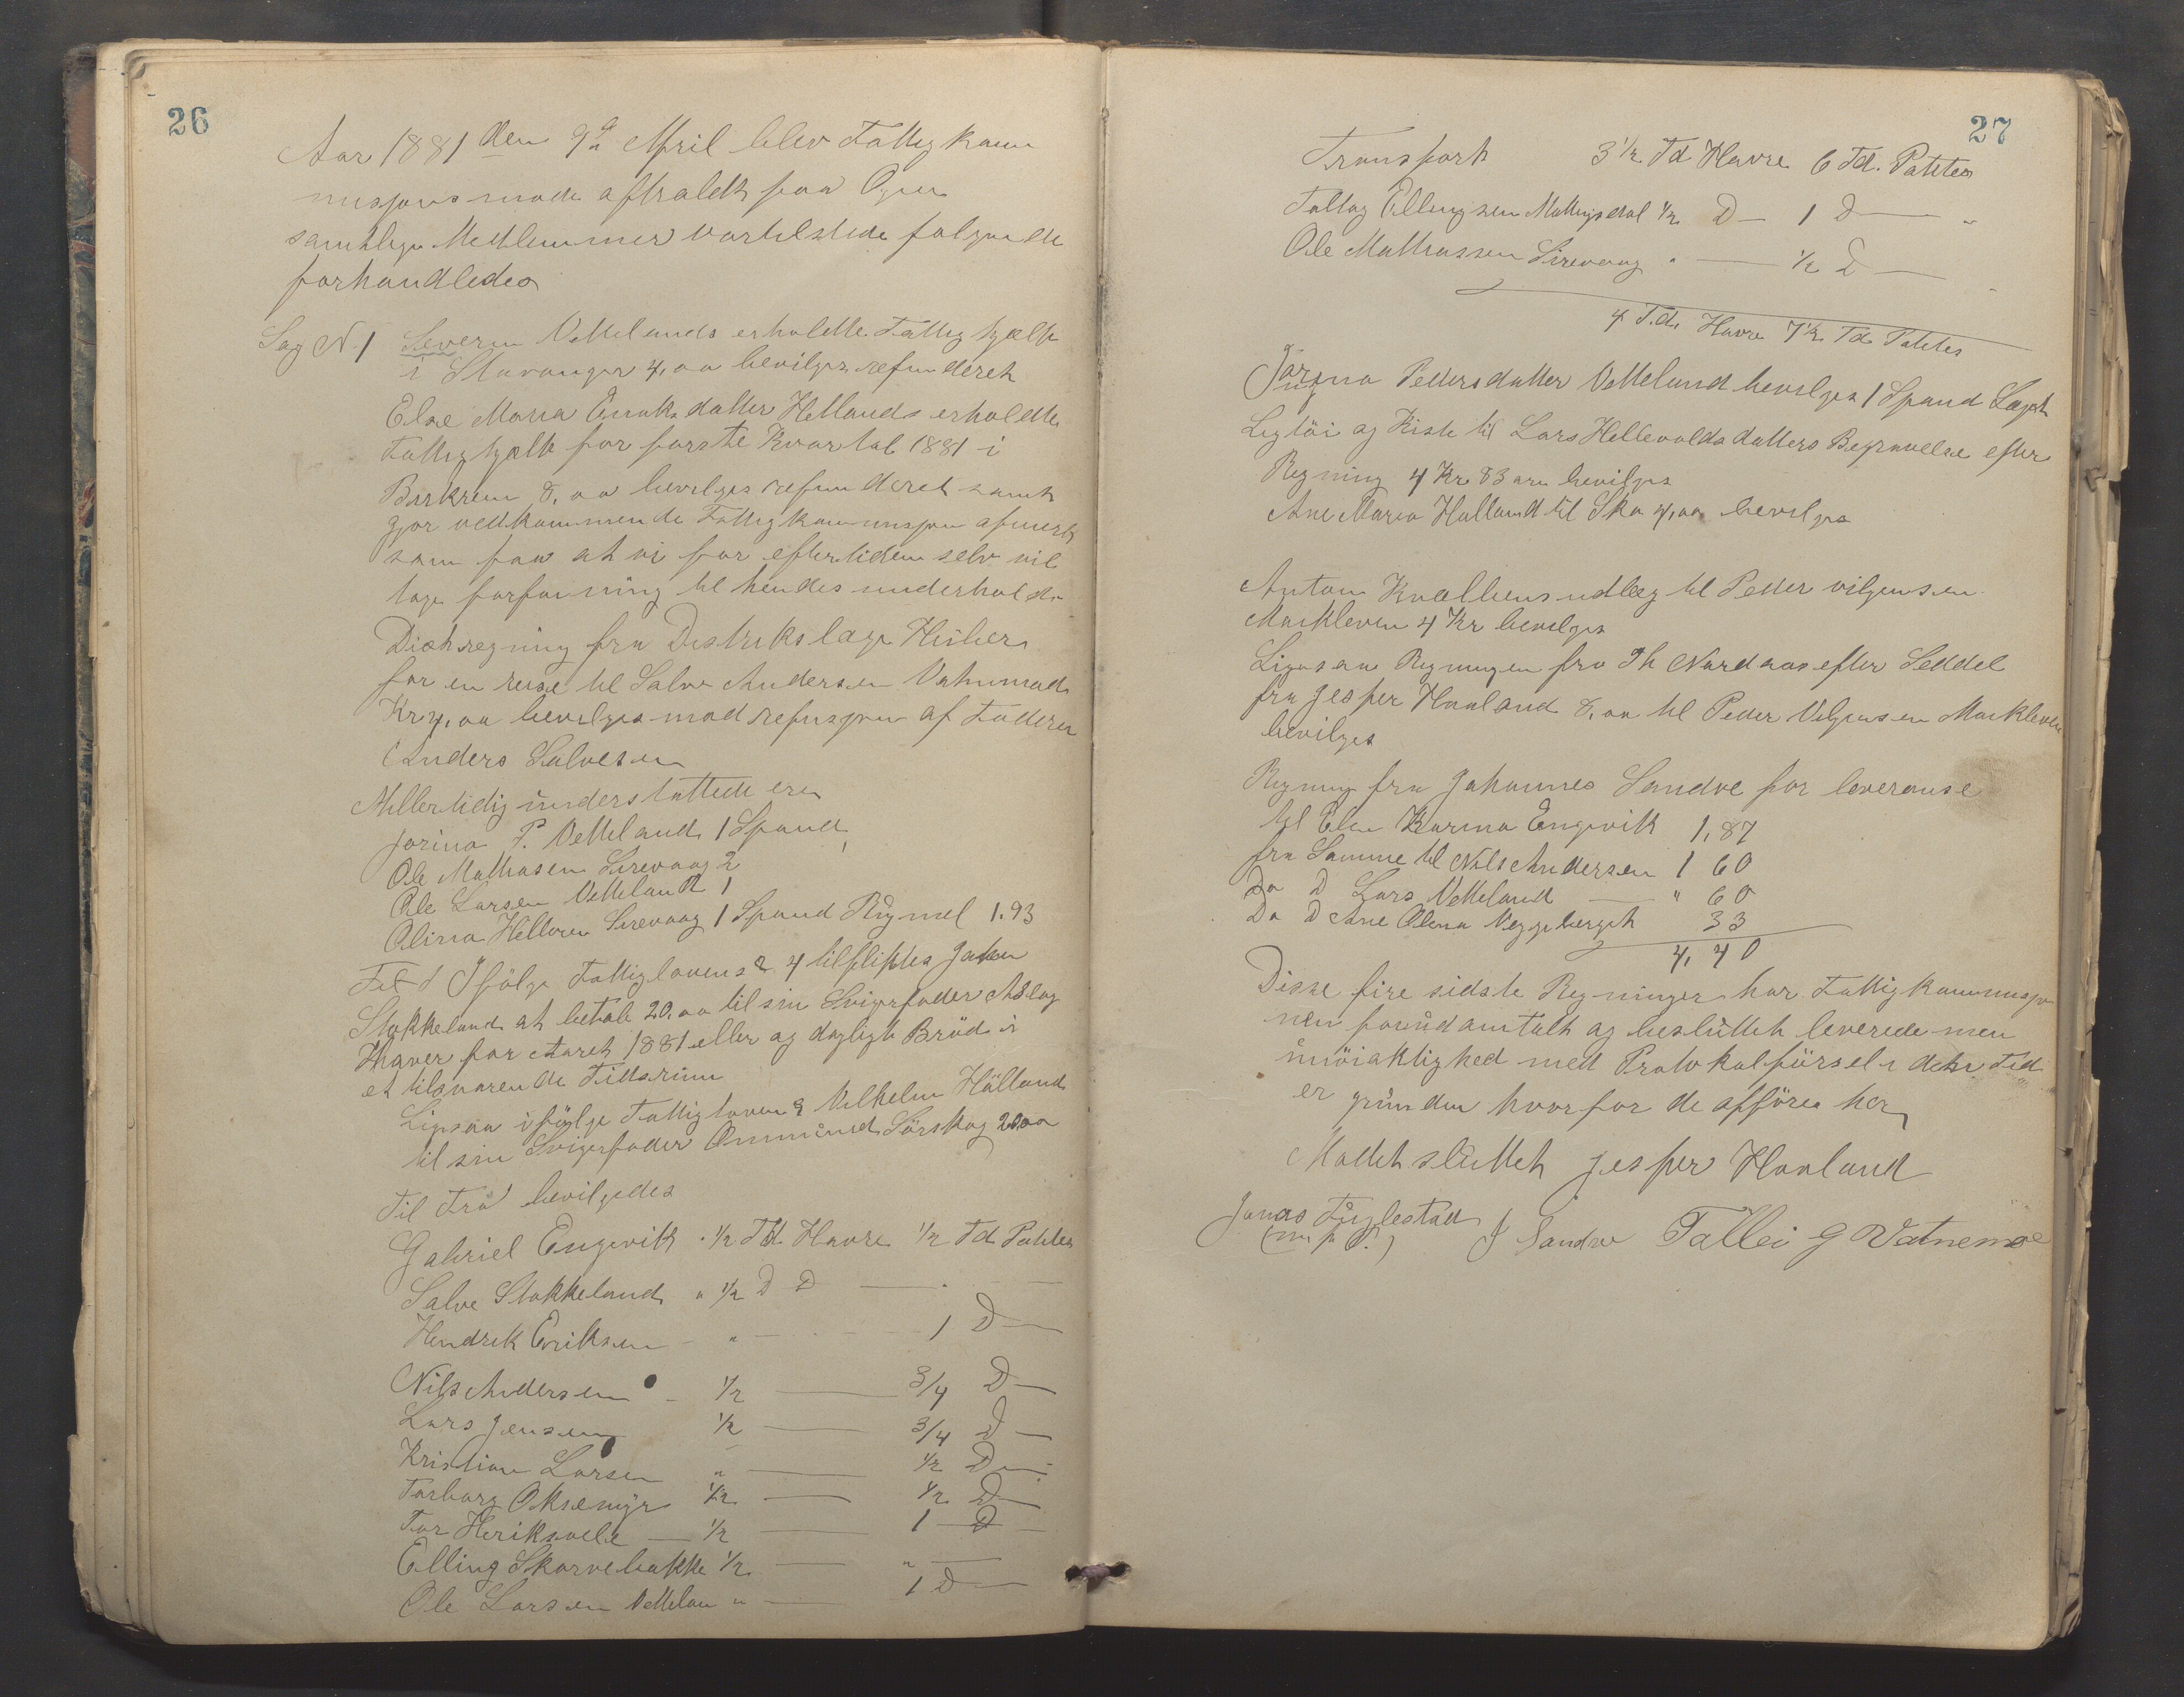 26
Aar 1881 den 9de April blev Fattigkom
misjons mode afhaldt paa Ogne
samtlige Medlemmer vartilstede folgende
forhandledes
Sag N. 1 Severin Vettelands erholdte Fattighjælp
i Stavanger 4,00 bevilges refunderet
Else Maria Enoksdatter Hetlands erholdte
Fattighjælp for forste Kvartal 1881 i
Birkrem 8,00 bevilges refunderet samt
gjor vedkommende Fattigkommisjon afmerk
som paa at vi for eftertiden selv vil
tage forsorning til hendes underhold
Diætregning fra Distrikslæge
for en reise til Salve Andersen Vatnemod
Kr 4,00 bevilges mod refusjon af Faderen
Anders Salvesen
Midlertidig understottede er
Jorina P. Vetteland 1 Spand
Ole Mathiasen Sirevaag 2
Ole Larsen Vetteland 1
Olina Helleren Sirevaag 1 Spand Rugmel 1.93
Ifölge Fattiglovens § 4 tilpligtes
Stokkeland at betale 20,00 til sin Svigerfader Aslag
for Aaret 1881 eller og dagligt Bröd i
et tilsvarende
Ligesaa ifölge Fattigloven § Vilhelm Hälland
til sin Svigerfader Ommund Sörskog 20,00
Til Frö bevilgedes
Gabriel Engevik " 1/2 Td Havre 1/2 Td Potetes
Salve Stokkeland " 1/2 D D — "
Hendrik Eriksen — " — 1 D —
Nils Andersen — 1/2 — 3/4 D —
Lars Jensen 1/2 — 3/4 D —
Kristian Larsen " — 1/2 D —
Torborg Oksemyr 1/2 — 1/2 D —
Tor Heriksvele — 1/2 — 1 D —
Elling Skarvebakke 1/2 — " —
Ole Larsen Vettelan " — 1 D —
27
Transport 3 1/2 Td Havre 6 Td. Potetes
Tollag Ellingsen Mattingsdal 1/2 D — 1 D — "
Ole Mathiassen Sirevaag " — 1/2 D —
4 Td. Havre 7 1/2 Td Potetes
Jorina Pedersdatter Vetteland bevilges 1 Spand
Ligtöi og Kiste til Lars Hellevolds datters Begravelse efter
Regning 4 Kr 83 øre bevilges
Ane Maria Halland til Sko 4,00 bevilges
Anton Kvalbens udlæg til Peder
Markleven 4 Kr bevilges
Ligesaa Regningen fra Th Nordaas efter Seddel
fra Jesper Haaland 8,00 til Peder Markleven
bevilges
Regning fra Johannes Sandve for leveranse
til Karina Engevik 1,87
fra Samme til Nils Andersen 1 60
Do D Lars Vetteland — " 60
Do D Ane Olena Veggebergeh 33
4,40
Disse fire sidste Regninger har Fattigkommisjo
nen omtalt og besluttet leverede men
unöiaktighed med Protokolförsel i den Tid
er grunden hvorfor de opföres her
Mödet sluttet Jesper Haaland
Jonas Fuglestad
(m p P.) J Sandve Tallei G Vatnemoe